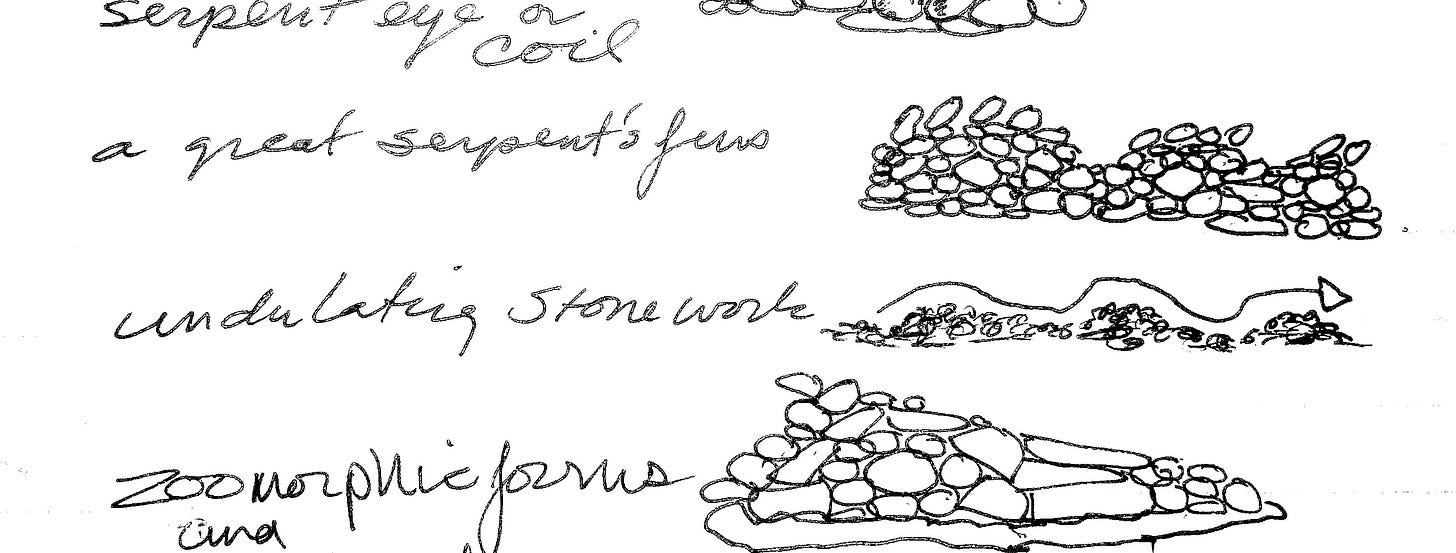 serpent eye or
coil
a great serpent's
undulating stonework
zoomorphic forms
and